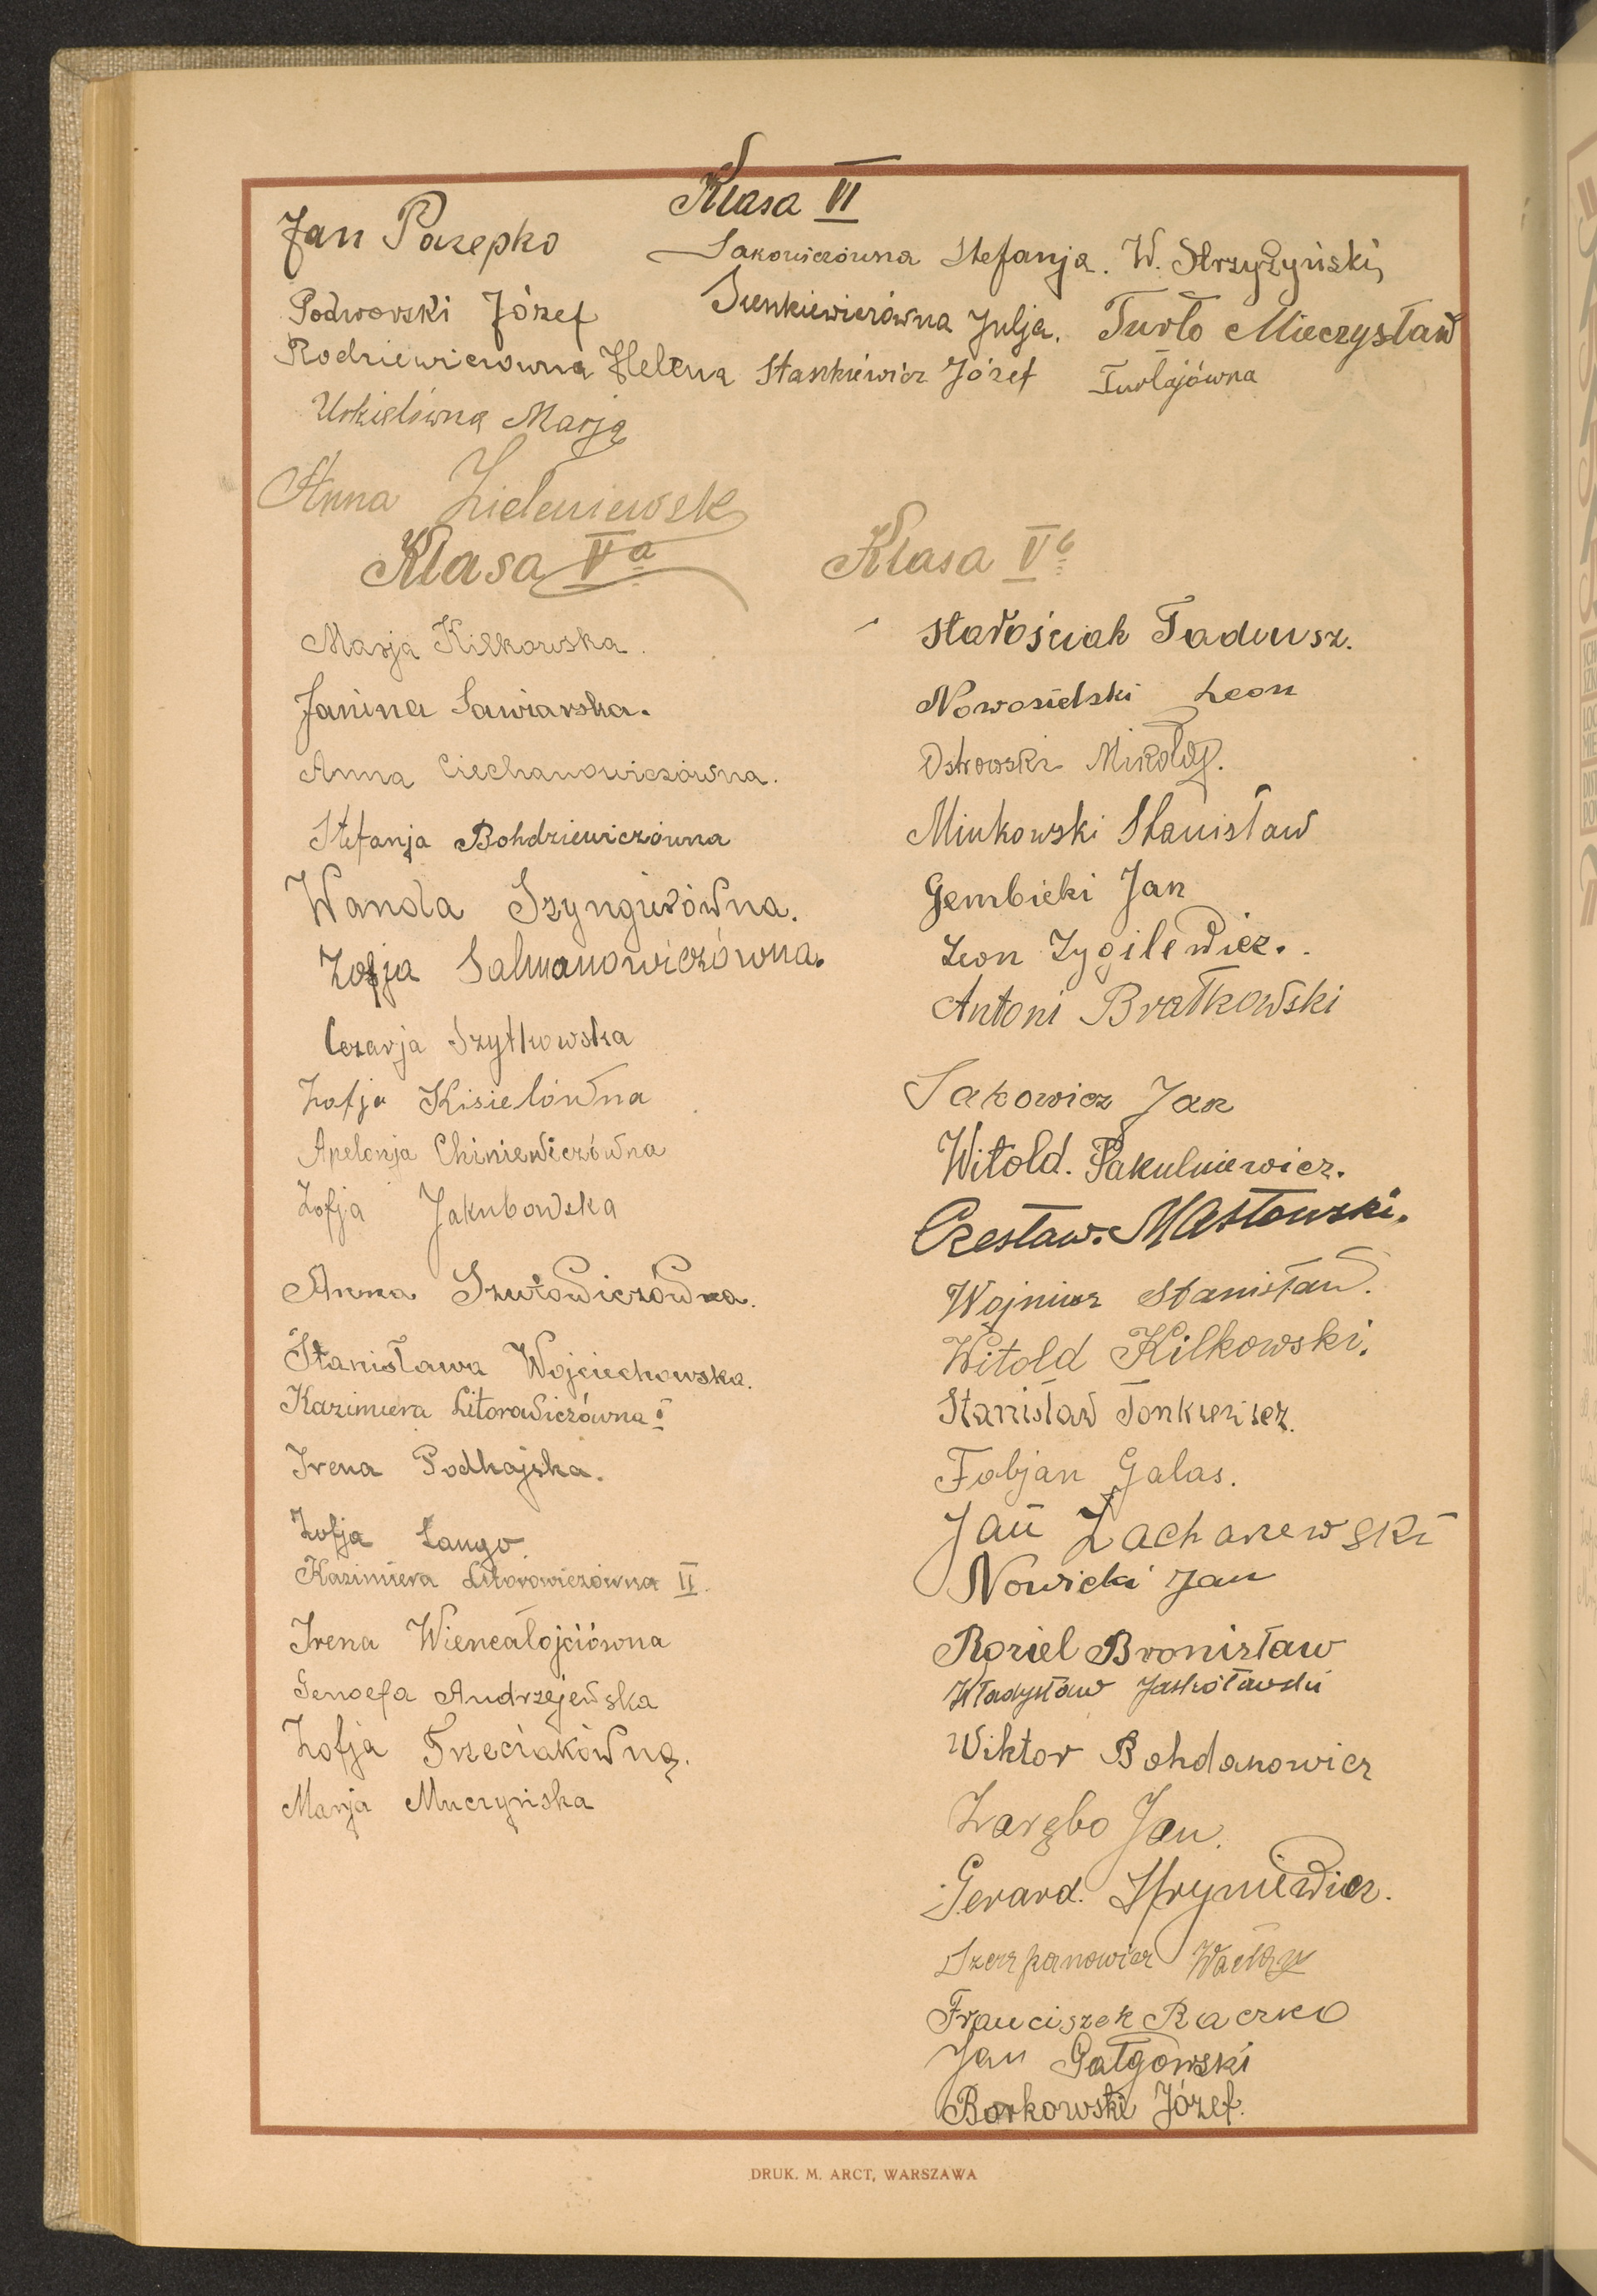 Klasa VI
Jan Pozepko
Sakowiczówna Stefanja. W. Skrzyżyński
Podworski Józef
Sienkiewiczówna Julja. Turło Mieczysław
Rodziewiczówna Helena Stankiéwicz Józef Turłajówna
Urkielówna Marja
Anna Zieleniewsk
Klasa Va
Marja Kilkowska.
Janina Sawiarska.
Anna Ciechanowiczówna.
Stefanja Bohdziewiczówna
Wanda Szyngierówna.
Zofja Salmanowiczówna.
Cezarja Szytkowska
Zofja Kisielówna
Apelonja Chiniewiczówna
Zofja Jakubowska
Anna Szutowiczówna.
Stanisława Wojciechowska.
Kazimiera Litorowiczówna I
Irena Podhajska.
Zofja Łango
Kazimiera Litorowiczówna II.
Irena Wiencałojciówna
Genoefa Andrzejewska
Zofja Trzeciakówna.
Marja Muczyńska
Klasa Vb
Starościak Tadeusz.
Nowosielski Leon
Ostrowski Mikołaj.
Minkowski Stanisław
Gembicki Jan
Leon Zygilewicz.
Antoni Bratkowski
Sakowicz Jan
Witold. Pakulniewicz.
Czesław. Masłowski.
Wojnicz Stanisław.
Witold Kilkowski.
Stanisław Tonkiewicz.
Fabjan Galas.
Jan Zacharzewski
Nowicki Jan
Roziel Bronisław
Władysław Jaskóławski
Wiktor Bohdanowicz
Zarębo Jan.
Gerard. Hryniewicz.
Szczepanowicz Wacław
Franciszek Raczko
Jan Gałgowski
Borkowski Józef.
DRUK. M. ARCT, WARSZAWA